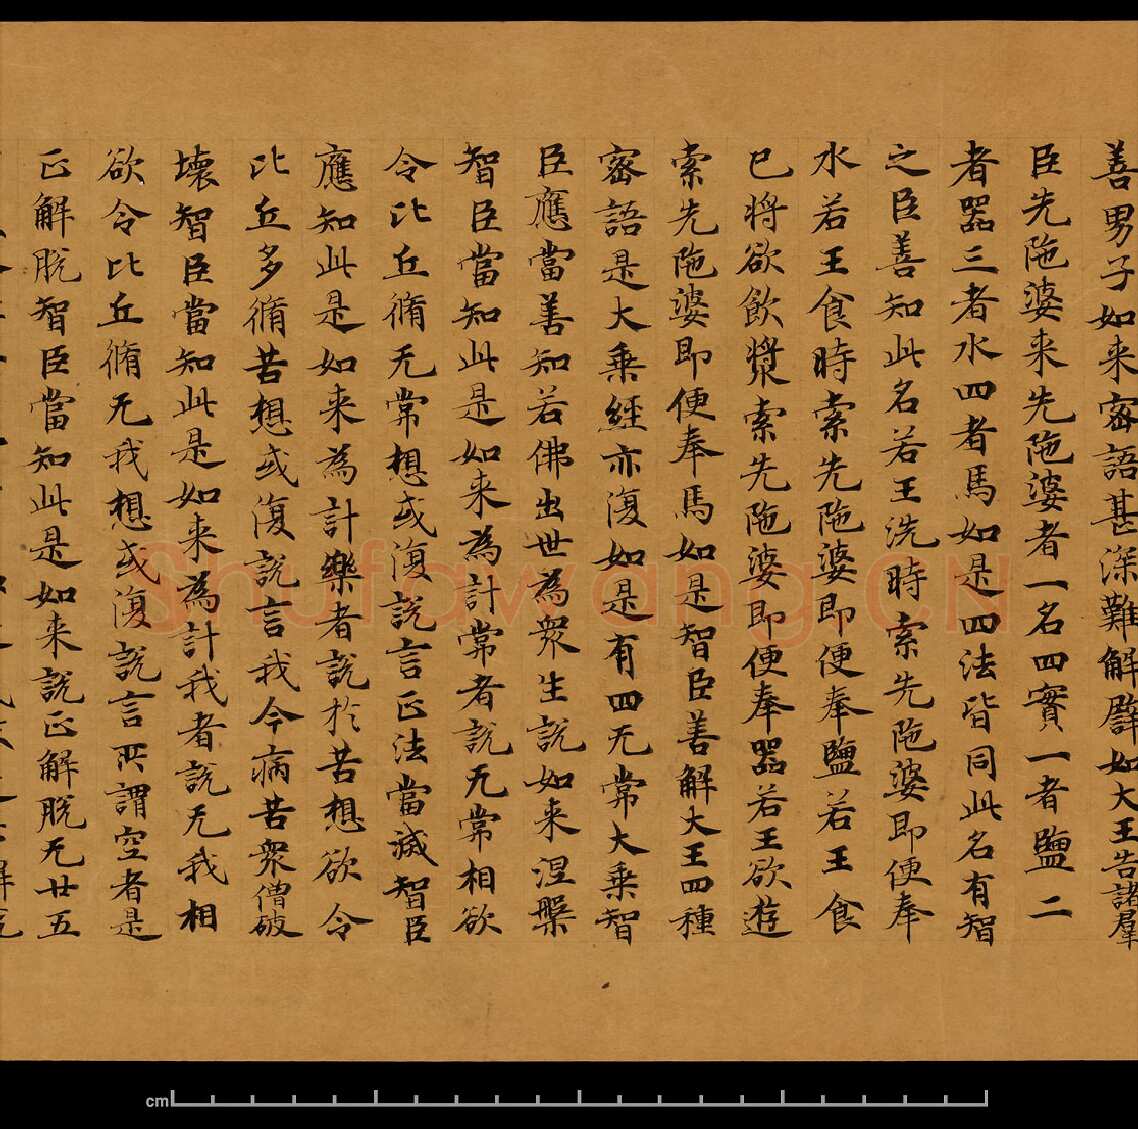 善男子如来密語甚深難解譬如大王告諸羣
臣先陁婆来先陁婆者一名四實一者鹽二
者器三者水四者馬如是四法皆同此名有智
之臣善知此名若王洗時索先陁婆即便奉
水若王食時索先陁婆即便奉鹽若王食
已將欲飲漿索先陁婆即便奉器若王欲遊
索先陁婆即便奉馬如是智臣善解大王四種
密語是大乗經亦復如是有四无常大乗智
臣應當善知若佛出世為衆生說如来涅槃
智臣當知此是如来為計常者說无常相欲
令比丘脩无常想或復說言正法當滅智臣
應知此是如来為計樂者說於苦想欲令
比丘多脩苦想或復說言我今病苦衆僧破
壞智臣當知此是如来為計我者說无我相
欲令比丘脩无我想或復說言所謂空者是
正解脫智臣當知此是如来說正解脫无廿五
Shufawang.CN
cm